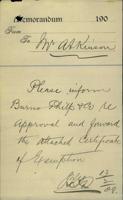 Memorandum 190
From
To Mr Atkinson
Please inform
Burns Philp & Co re
Approval and forward
the attached Certificate
of Exemption